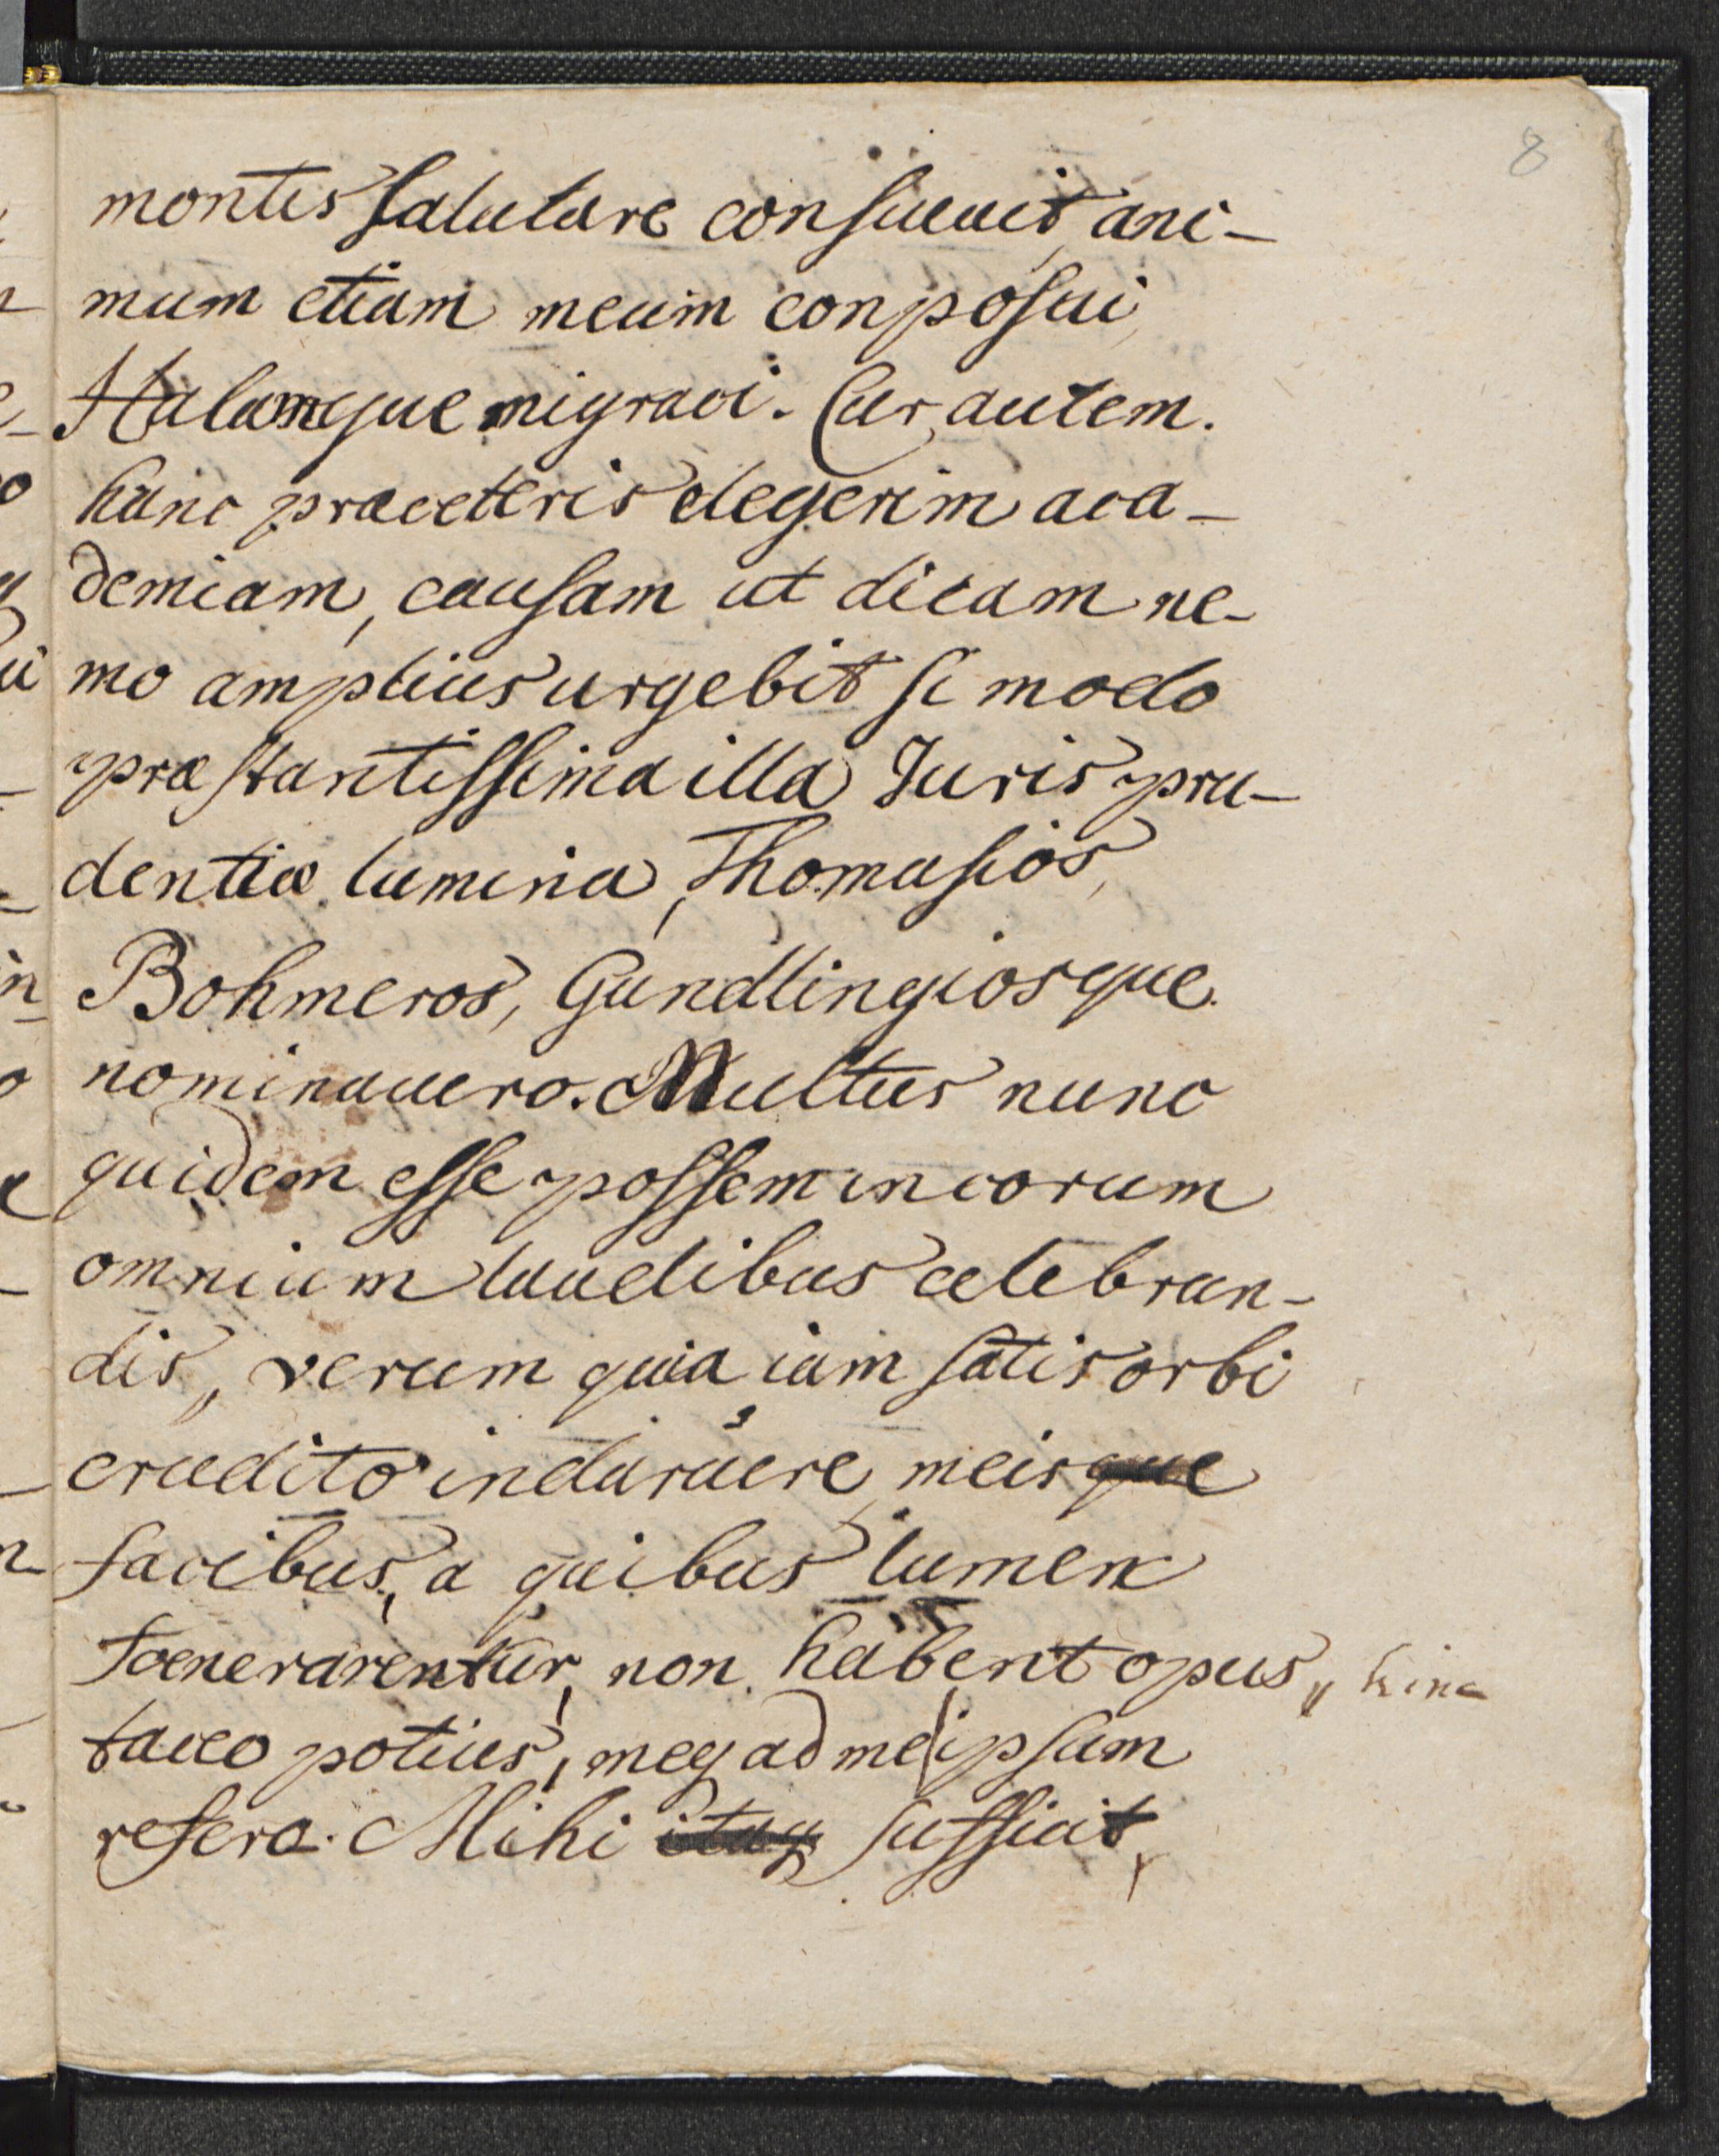 8
montes salutare consueuit, ani-
mum etiam meum conposui,
Halamque migravi. Cur autem.
hanc praeceteris elegerim aca-
demiam, causam ut dicam ne-
mo amplius urgebit si modo
præstantissima illa Juris pru-
dentiæ lumina, Thomasios,
Bohmeros, Gundlingiosque.
nominauero. Multus nunc
quidem esse possem in eorum
omnium laudibus celebran-
dis, verum quia iam satis orbi
erudito inclaruere, meisque
facibus, a quibus lumen
foenerarentur, non habent opus, hinc
taceo potius, meq ad me ipsum
refero. Mihi itaq sufficit,